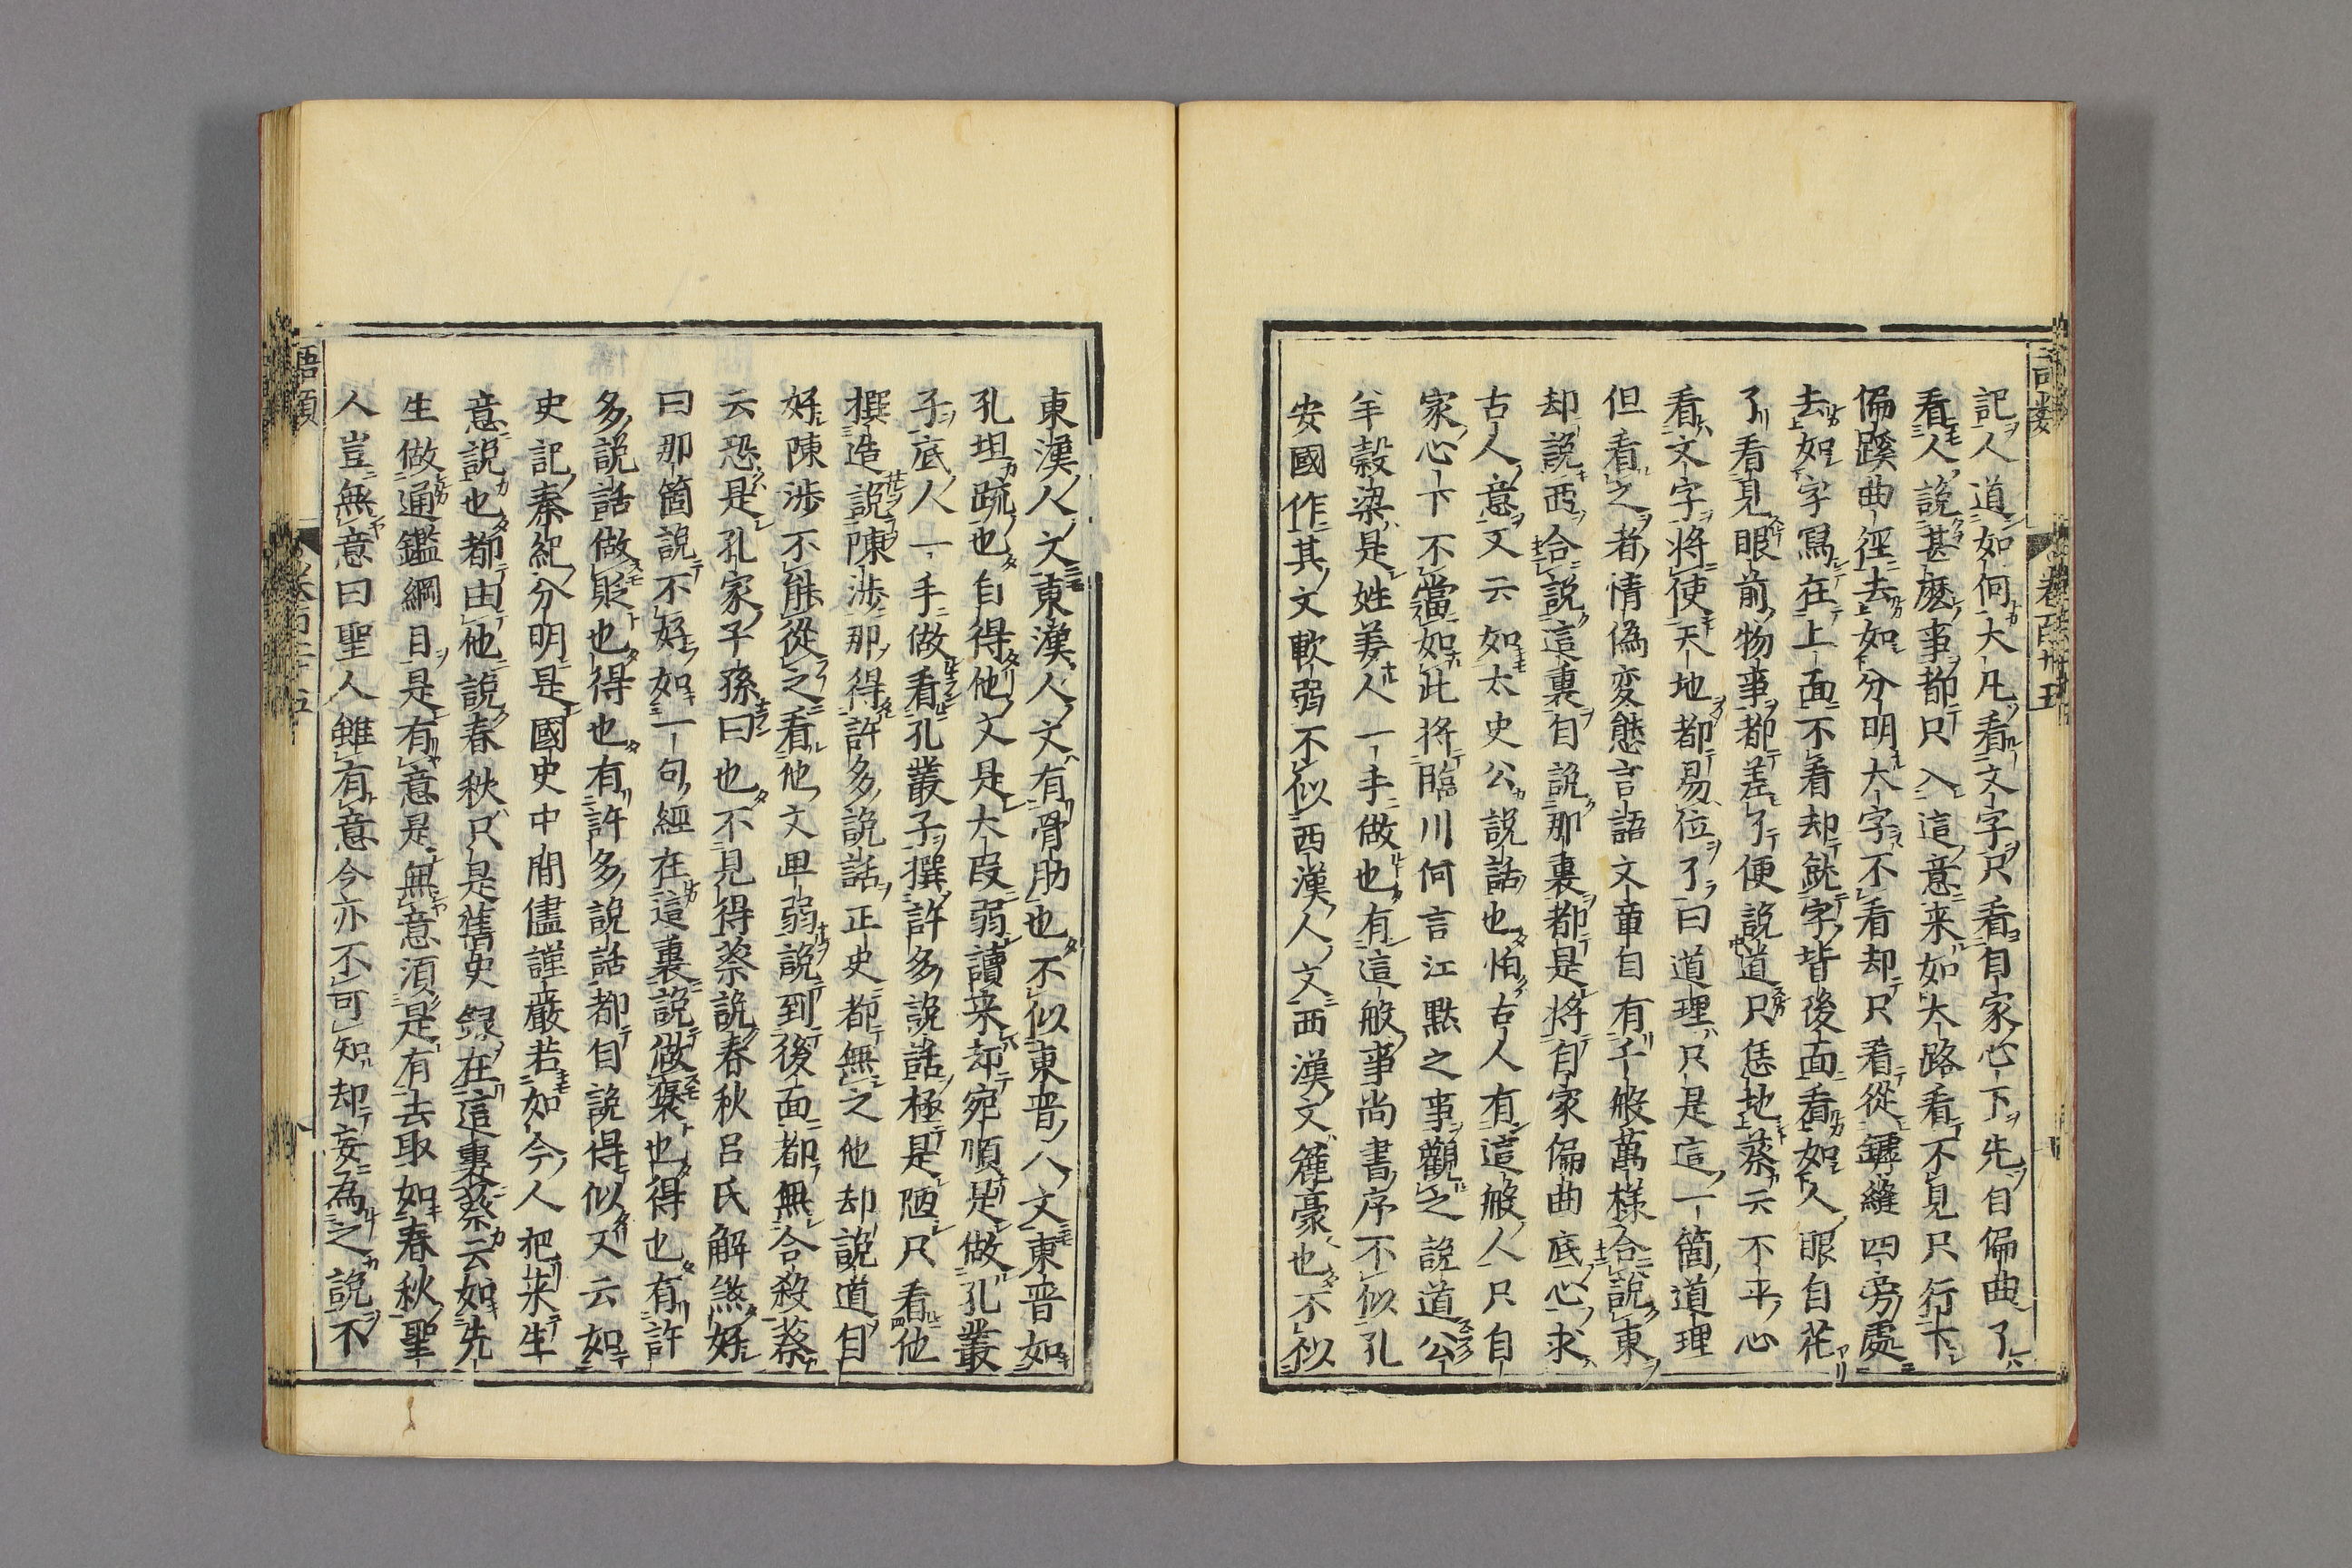 記人道如何大凡看文字只看自家心下先自偏曲了
看人說甚麽事都只入這意来如大路看不見只行下
偏蹊曲徑去如分明大字不看却只看從罅縫四旁處
去如字寫在上面不看却就字背後面看如人眼自花
了看見眼前物事都差了便說道只恁地蔡云不平心
看文字將使天地都易位了曰道理只是這一箇道理
但看之者情偽変態言語文章自有千般萬樣合說東
却說西合說這裏自說那裏都是將自家偏曲底心求
古人意又云如太史公說話也怕古人有這般人只自
家心下不當如此将臨川何言江黙之事觀之說道公
羊榖梁是姓姜人一手做也有這般事尚書序不似孔
安國作其文軟弱不似西漢人文西漢文麄豪也不似
東漢人文東漢人文有骨肋也不似東晋人文東晋如
孔坦疏也自得他文是大段弱讀来却宛順是做孔叢
子底人一手做看孔叢子撰許多說話極是陋只看他
撰造說陳渉那得許多說話正史都無之他却說道自
好陳渉不能從之看他文卑弱說到後面都無合殺蔡
云恐是孔家子孫曰也不見得蔡說春秋吕氏解煞好
曰那箇說不好如一句經在這裏說做褒也得也有許
多說話做貶也得也有許多說話都自說得似又云如
史記秦紀分明是國史中間儘謹嚴若如今人把来生
意說也都由他說春秋只是舊史録在這裏蔡云如先
生做通鑑綱目是有意是無意湏是有去取如春秋聖
人豈無意曰聖人雖有意今亦不可知却妄為之說不
語類
卷百二十五